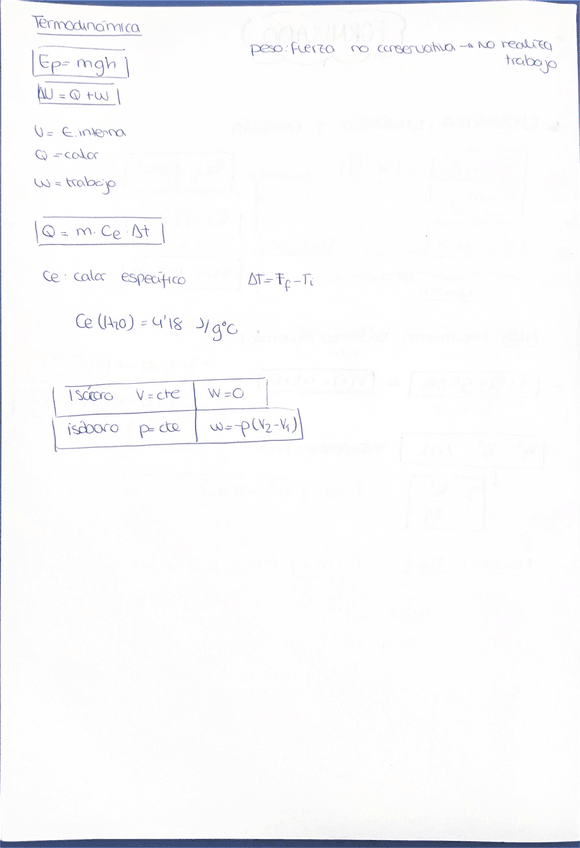 Termodinámica
peso: fuerza no conservativa → No realiza
trabajo
Ep = mgh
ΔU = Q + W
U = E. interna
Q = calor
W = trabajo
Q = m · Ce · Δt
Ce: calor específico ΔT = Tf - Ti
Ce (H2O) = 4'18 J/g°C
Isócoro V = cte W = 0
isóbaro p = cte W = -p(V2 - V1)